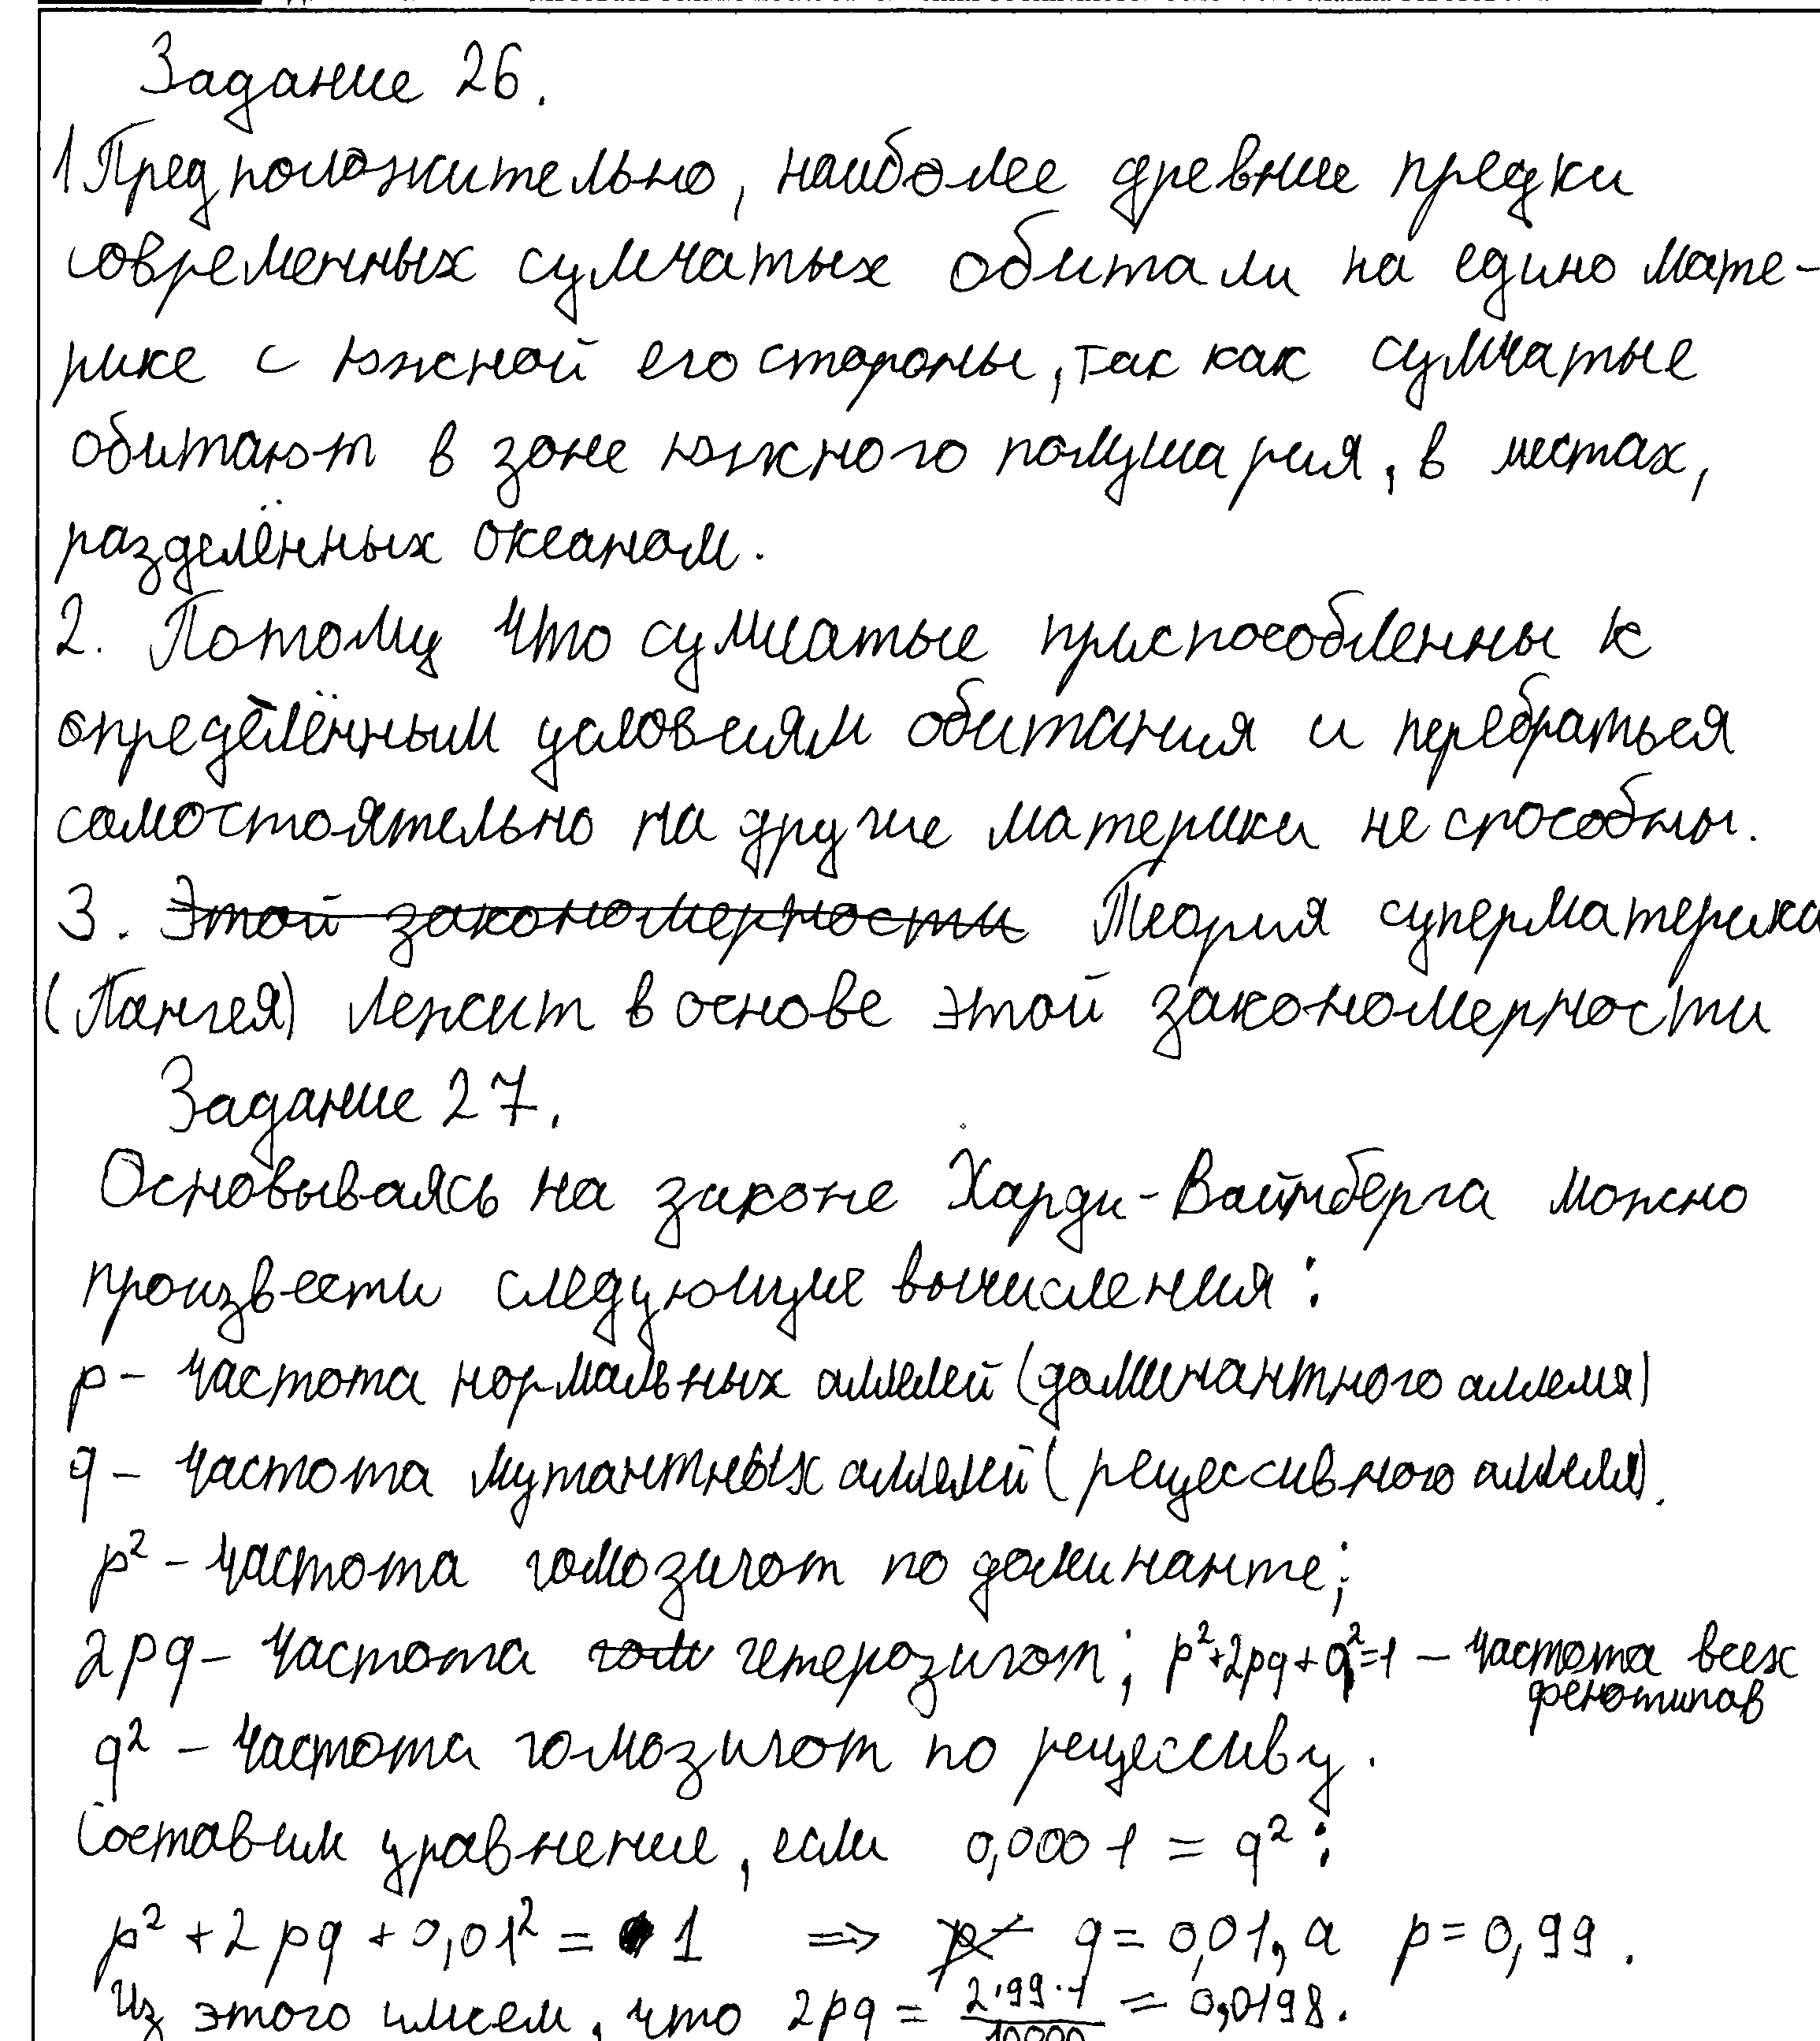 Задание 26.
1 Предположительно, наиболее древние предки
современных сумчатых обитали на едино мате-
рике с южной его стороны, так как сумчатые
обитают в зоне южного полушария, в местах,
разделённых океаном.
2. Потому что сумчатые приспособленны к
определённым условиям обитания и перебраться
самостоятельно на другие материки не способны.
3. Этой закономерности Теория суперматерика
(Пангея) лежит в основе этой закономерности
Задание 27.
Основываясь на законе Харди-Вайнберга можно
произвести следующие вычисления:
p - частота нормальных аллелей (доминантного аллеля)
q - частота мутантных аллелей (рецессивного аллеля).
p² - частота гомозигот по доминанте;
2pq - частота гом гетерозигот; p²+2pq+q²=1 - частота всех
фенотипов
q² - частота гомозигот по рецессиву.
Составим уравнение, если 0,0001 = q²:
p² + 2pq + 0,01² = 1 => p q = 0,01, а p = 0,99.
Из этого имеем, что 2pq = 2·99·1/10000 = 0,0198.